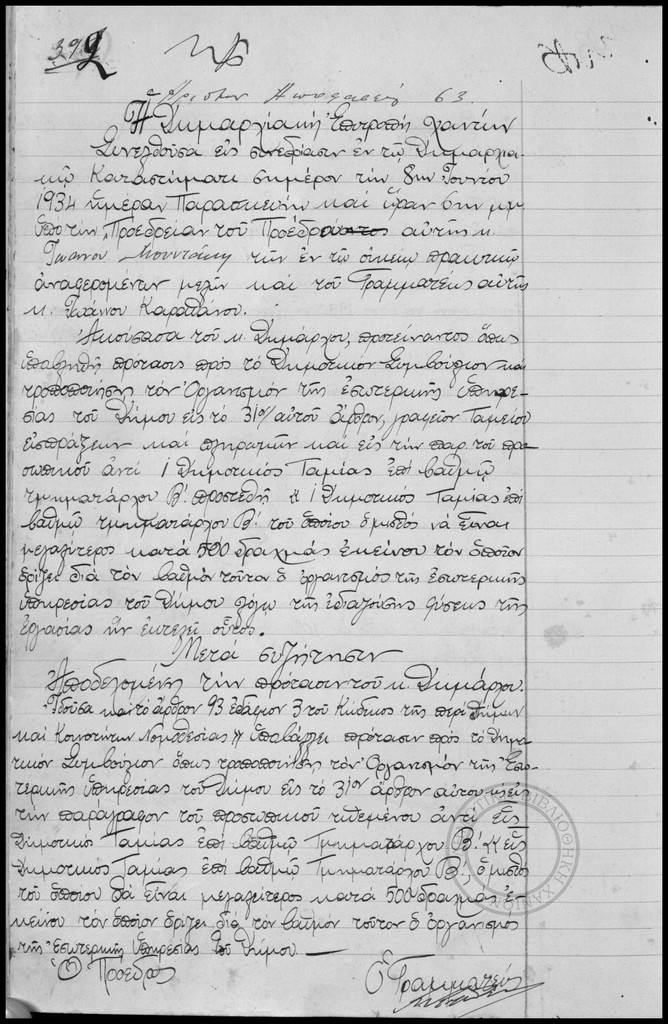 399
Αριθμ Αποφάσεως 63.
Ἡ Δημαρχιακὴ Ἐπιτροπὴ Χανίων
Συνελθοῦσα εἰς συνεδρίασιν ἐν τῷ Δημαρχια-
κῷ Καταστήματι σήμερον τὴν 8ην Ἰουνίου
1934 ἡμέραν Παρασκευὴν καὶ ὥραν 6ην μμ
ὑπὸ τὴν Προεδρείαν τοῦ Προέδρου αὐτῆς κ.
Ἰωάννου Μουντάκη τῶν ἐν τῷ οἰκείῳ πρακτικῷ
ἀναφερομένων μελῶν καὶ τοῦ Γραμματέως αὐτῆς
κ. Ἰωάννου Καραπάνου.
Ἀκούσασα τοῦ κ. Δημάρχου, προτείναντος ὅπως
ὑποβληθῇ πρότασις πρὸς τὸ Δημοτικὸν Συμβούλιον καὶ
τροποποιήσῃ τὸν Ὀργανισμὸν τῆς ἐσωτερικῆς ὑπηρε-
σίας τοῦ Δήμου εἰς τὸ 31ον αὐτοῦ ἄρθρον, γραφεῖον Ταμείου
εἰσπράξεων καὶ πληρωμῶν καὶ εἰς τὴν παρ. τοῦ προ-
σωπικοῦ ἀντὶ 1 Δημοτικὸς Ταμίας ἐπὶ βαθμῷ
τμηματάρχου Β΄. προστεθῇ « 1 Δημοτικὸς Ταμίας ἐπὶ
βαθμῷ τμηματάρχου Β΄. τοῦ ὁποίου ὁ μισθὸς νὰ εἶναι
μεγαλύτερος κατὰ 500 δραχμὰς ἐκείνου τὸν ὁποῖον
ὁρίζει διὰ τὸν βαθμὸν τοῦτον ὁ ὀργανισμὸς τῆς ἐσωτερικῆς
ὑπηρεσίας τοῦ Δήμου λόγῳ τῆς ἰδιαζούσης φύσεως τῆς
ἐργασίας ἣν ἐκτελεῖ οὗτος.
Μετὰ συζήτησιν
Ἀποδεχομένη τὴν πρότασιν τοῦ κ. Δημάρχου.
Ἰδοῦσα καὶ τὸ ἄρθρον 93 ἐδάφιον 3 τοῦ Κώδικος τῆς περὶ Δήμων
καὶ Κοινοτήτων Νομοθεσίας ὑποβάλλει πρότασιν πρὸς τὸ Δημο-
τικὸν Συμβούλιον ὅπως τροποποιήσῃ τὸν Ὀργανισμὸν τῆς Ἐσω-
τερικῆς ὑπηρεσίας τοῦ Δήμου εἰς τὸ 31ον ἄρθρον αὐτοῦ κ εἰς
τὴν παράγραφον τοῦ προσωπικοῦ τιθεμένου ἀντὶ εἷς
Δημοτικὸς Ταμίας ἐπὶ βαθμῷ Τμηματάρχου Β΄. « εἷς
Δημοτικὸς Ταμίας ἐπὶ βαθμῷ Τμηματάρχου Β΄, ὁ μισθὸς
τοῦ ὁποίου θὰ εἶναι μεγαλύτερος κατὰ 500 δραχμὰς ἐ-
κείνου τὸν ὁποῖον ὁρίζει διὰ τὸν βαθμὸν τοῦτον ὁ ὀργανισμὸς
τῆς Ἐσωτερικῆς Ὑπηρεσίας τοῦ Δήμου
Ὁ Πρόεδρος
Ὁ Γραμματεύς
ΔΗΜΟΤΙΚΗ ΒΙΒΛΙΟΘΗΚΗ ΧΑΝΙΩΝ